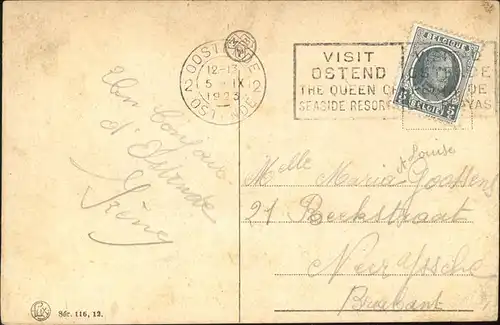 OOSTENDE
12-13
2 5 IX 2
1923
OSTENDE
VISIT
OSTEND
THE QUEEN OF
SEASIDE RESORTS
BELGIQUE
BELGIË 5
Un bonjour
d'Ostende
Irène
Melle Maria & Louise Goossens
21 Beekstraat
Neeryssche
Brabant
Sér. 116, 12.